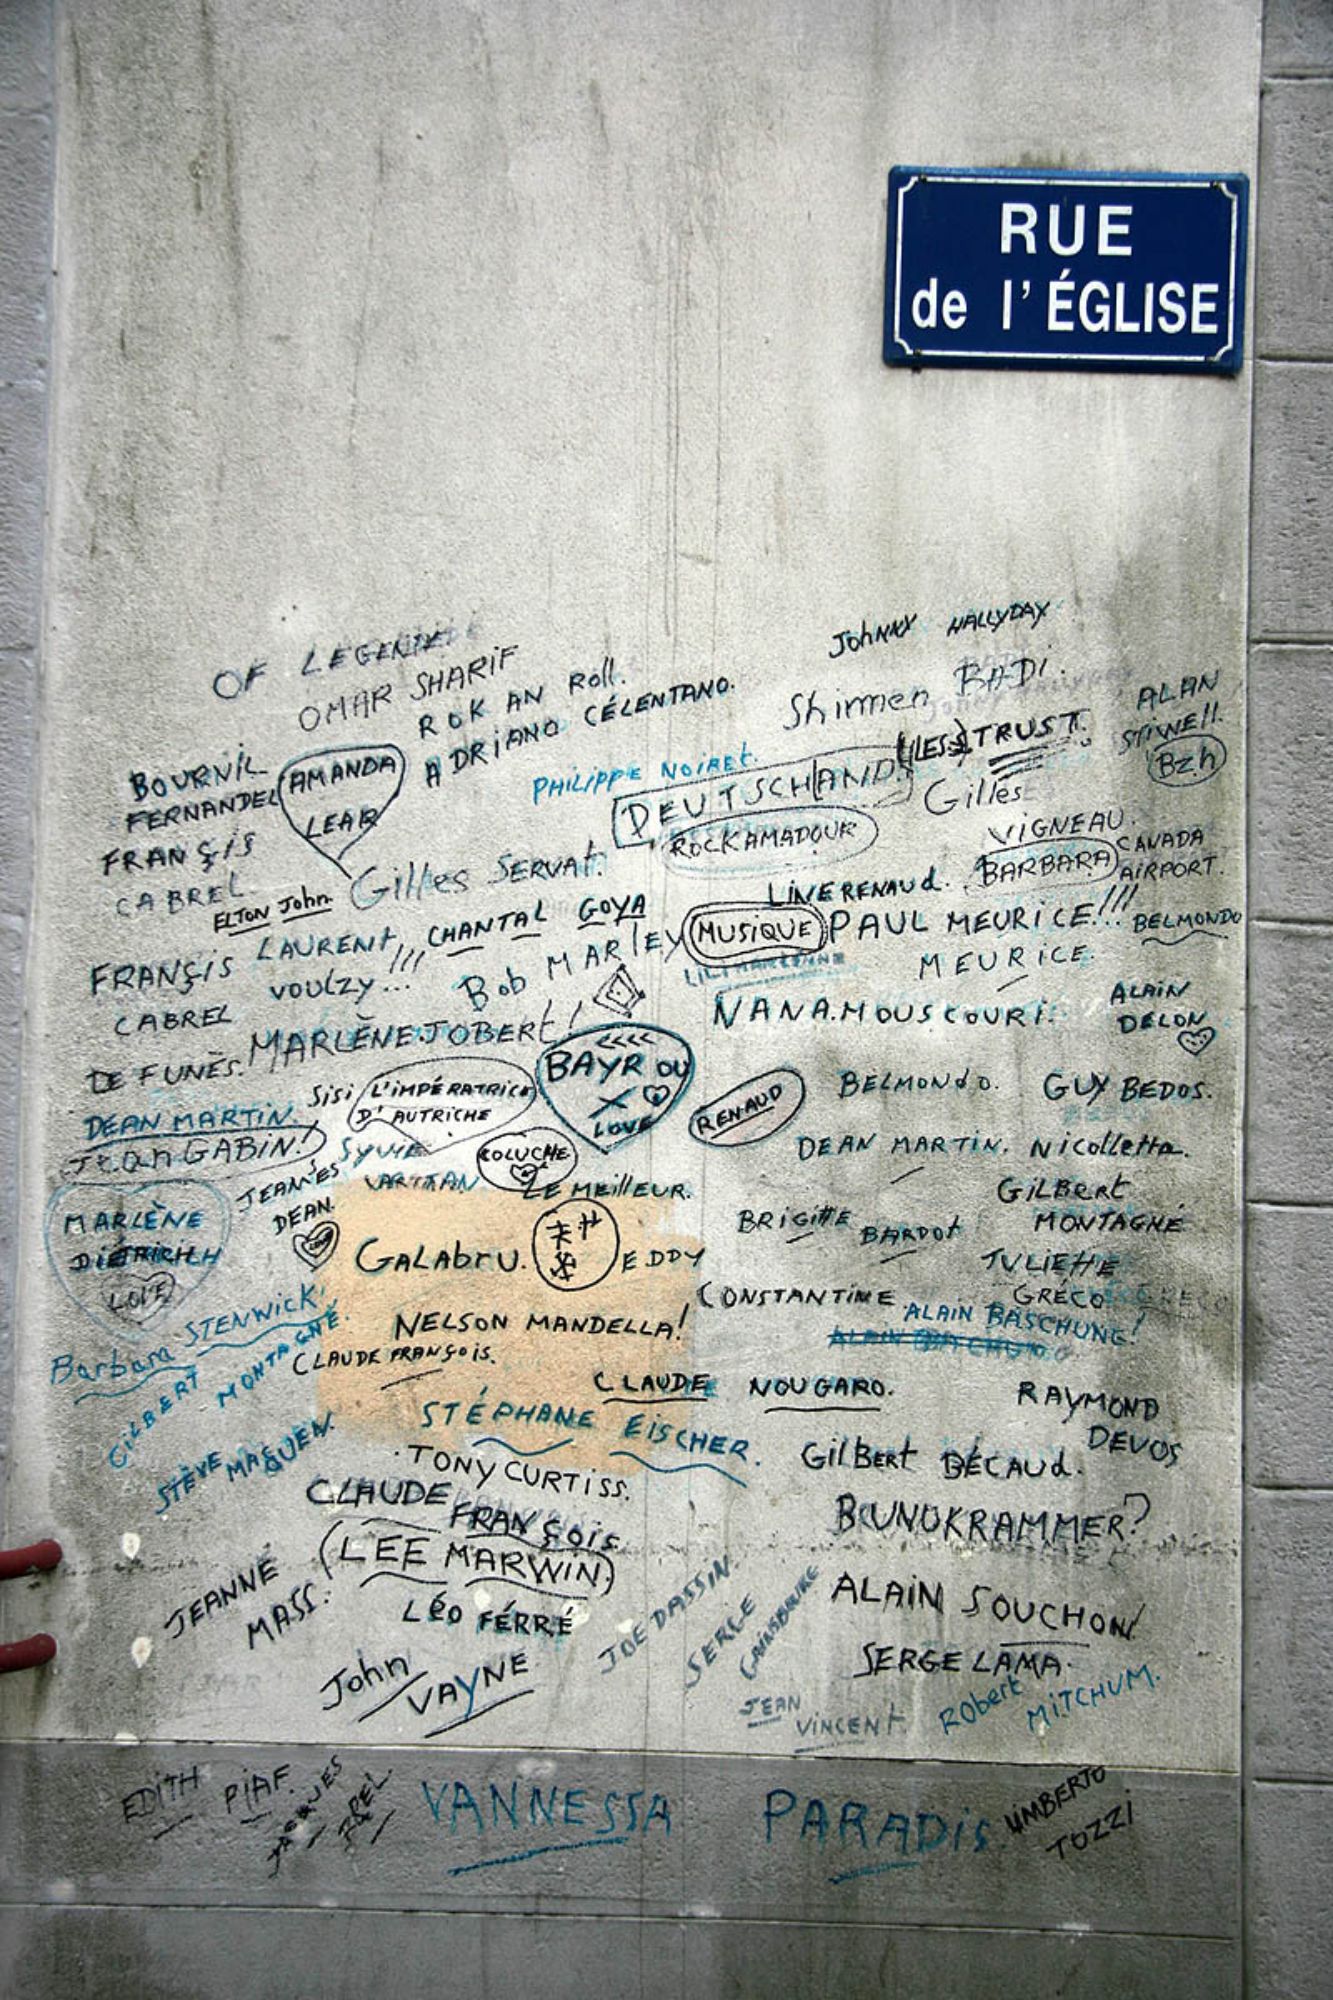 RUE
de l'ÉGLISE
JohNNY HALLYDAY
OF LEGENDE
OMAR SHARiF
ROK AN Roll.
ADRiANO CÉLENTANO.
Shirmen BADi.
ALAN
STiWEll.
Bzh
BOURViL
FERNANDEL
AMANDA
LEAR
PHILIPPE NOiREt.
DEUTSCHLAND
(LES) TRUST.
Gilles
ViGNEAU.
FRANÇiS
CABREL
ROCKAMADOUR
BARBARA
CANADA
AIRPORT.
ELTON John.
Gilles SERVAt.
LiNE RENAUd.
LAURENt
VOULZY...!!!
CHANTAL GOYA
Bob MARLEY
MUSiQUE
PAUL MEURiCE!!!
BELMONDO
FRANÇiS
CABREL
LILI MARLENNE
MEURiCE.
NANA.MOUSCOURi.
ALAiN
DELON
MARLÈNE JOBERt!
DE FUNÈS.
BAYROU
X
LOVE
SiSi L'iMPÉRATRiCE
D'AUTRiCHE
RENAUD
BELMONdO.
GUY BEDOS.
DEAN MARTiN.
JEAN GABiN!
SYLViE
VARTTAN
COLUCHE
LE MEiLLEUR.
DEAN MARTiN.
NiCOLLEttA.
MARLÈNE
DiÉTRiRiCH
LOVE
JEAMES
DEAN.
BRiGittE BARDOt
GiLBERt
MONTAGNÉ
GALAbRU.
EDDY
CONSTANTiNE
JULiEttE
GRÉCO
Barbara STENWiCK.
NELSON MANDELLA!
ALAiN BASCHUNG!
GiLBERT MONTAGNÉ.
CLAUDE FRANÇOiS.
CLAUDE NOUGARO.
RAYMOND
DEVOS
STÉPHANE EiSCHER.
STÈVE MAQUEN.
TONY CURTiSS.
GilBERt BÉCAUd.
CLAUDE
FRANÇOiS
BUNOKRAMMER?
(LEE MARWiN)
JEANNE
MASS.
LÉO FÉRRÉ
JOE DASSiN.
SERGE
GAiNSBOURG
ALAiN SOUCHON!
SERGE LAMA.
John
VAYNE
JEAN
ViNCENt
RObERt MiTCHUM.
EDiTH PiAF.
JACQUES
BREL.
VANNESSA PARADiS
UMBERTO
TOZZI